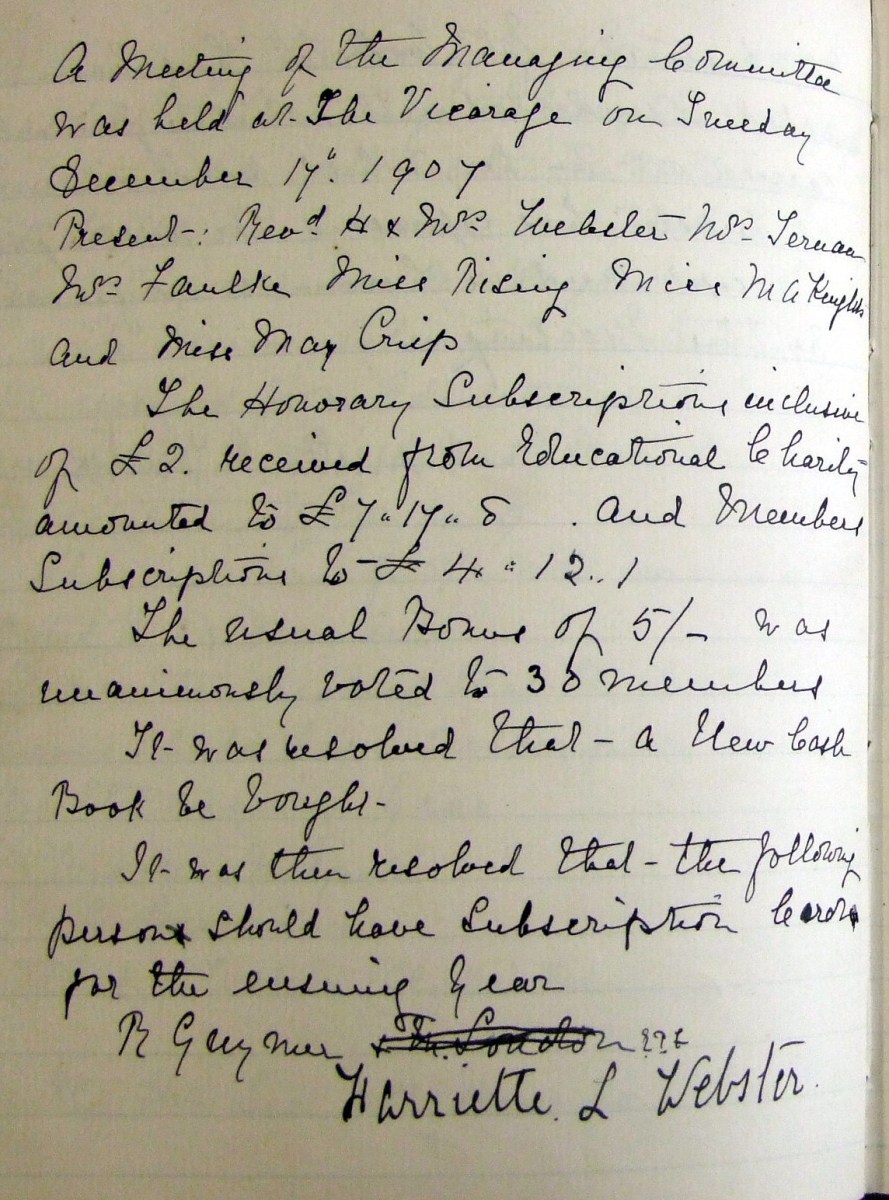 A Meeting of the Managing Committee
was held at The Vicarage on Tuesday
December 17". 1907
Present-: Revd H & Mrs Webster Mrs Ternan
Mrs Faulke Miss Rising Miss M A Knights
and Miss May Crisp
The Honorary Subscriptions inclusive
of £2. received from Educational Charity
amounted to £7"17"8 . and Members
Subscriptions to £4"12..1
The usual Bonus of 5/- was
unanimously voted to 30 members
It was resolved that - a New Cash
Book be bought-
It was then resolved that - the following
persons should have Subscription Cards
for the ensuing year
R Guymer
Harriette. L Webster.